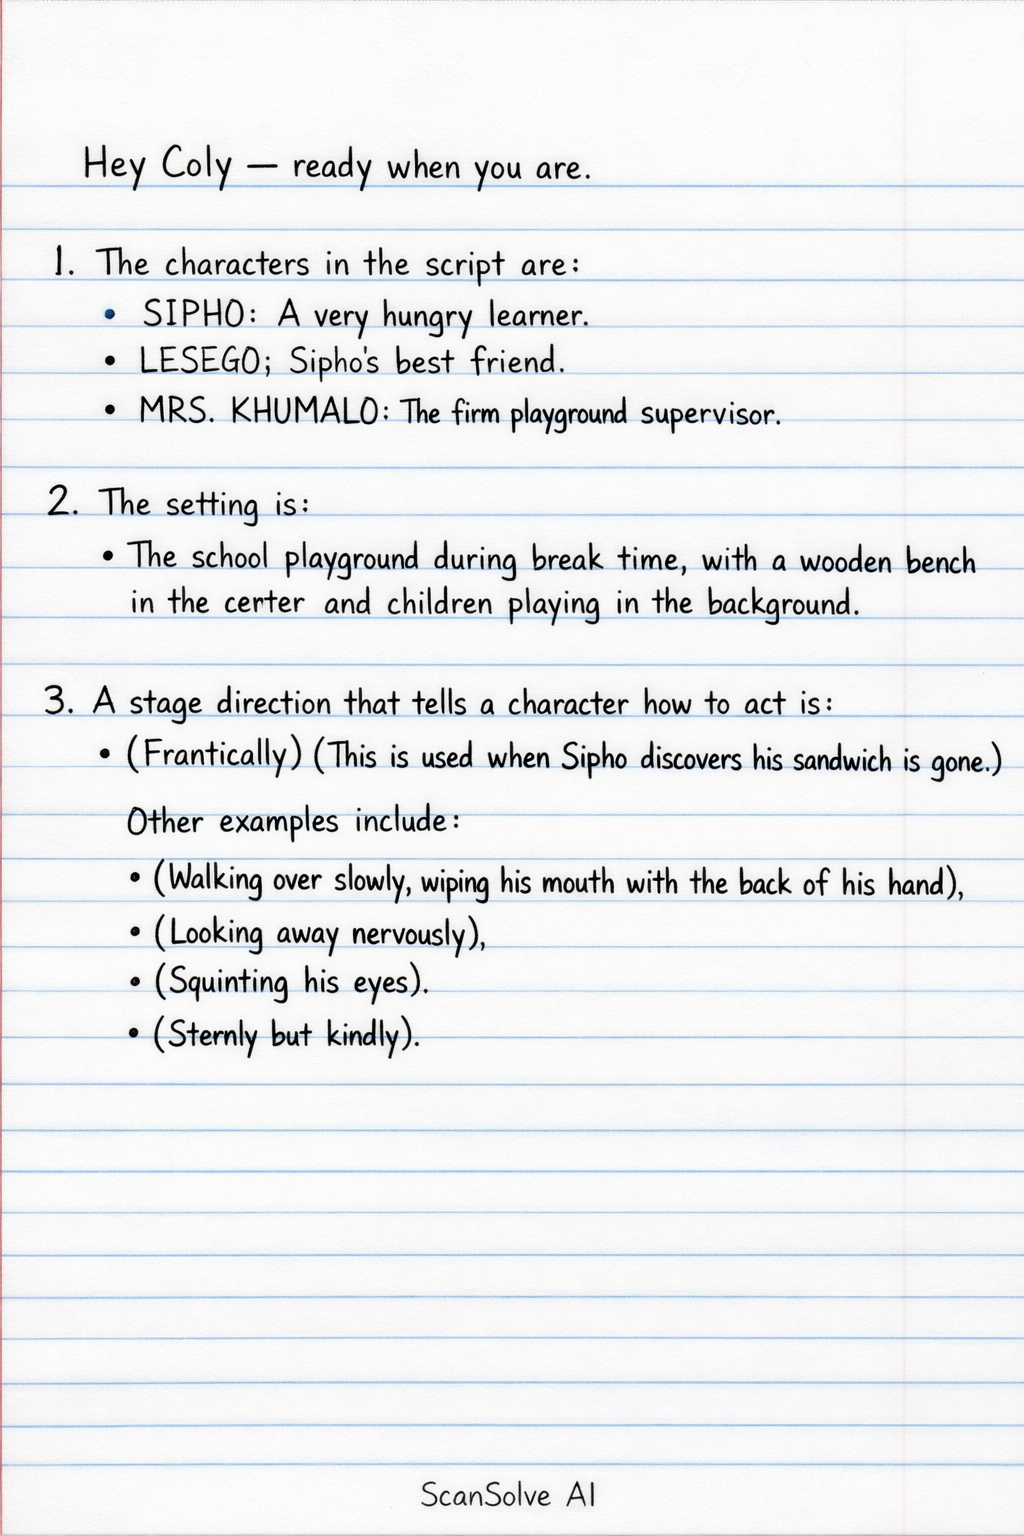 Hey Coly — ready when you are.
1. The characters in the script are:
• SIPHO: A very hungry learner.
• LESEGO; Sipho's best friend.
• MRS. KHUMALO: The firm playground supervisor.
2. The setting is:
• The school playground during break time, with a wooden bench
in the certer and children playing in the background.
3. A stage direction that tells a character how to act is:
• (Frantically) (This is used when Sipho discovers his sandwich is gone.)
Other examples include:
• (Walking over slowly, wiping his mouth with the back of his hand),
• (Looking away nervously),
• (Squinting his eyes).
• (Sternly but kindly).
ScanSolve AI